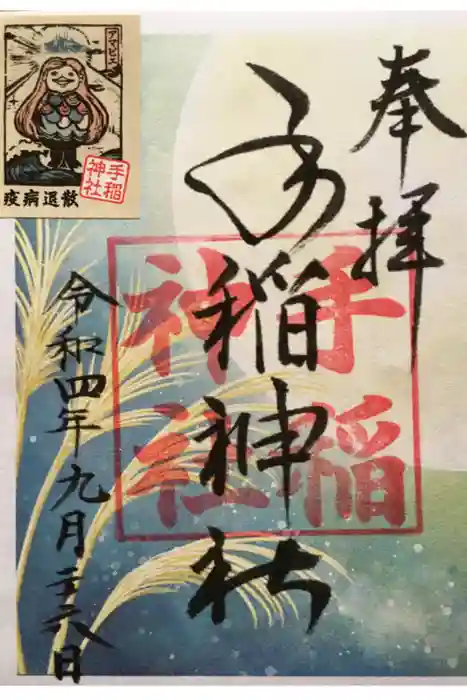 奉拝
手稲神社
手稲
神社
令和四年九月二十六日
アマビエ
手稲
神社
疫病退散